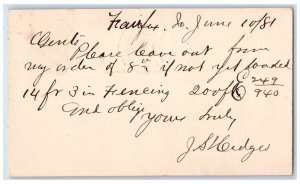 Fairfax, Io, June 10/81
Gents
Please leave out from
my order of 8th if not yet loaded
14 ft 3 in Fencing 200 ft 249/940
and oblige
yours truly
J S Hedges